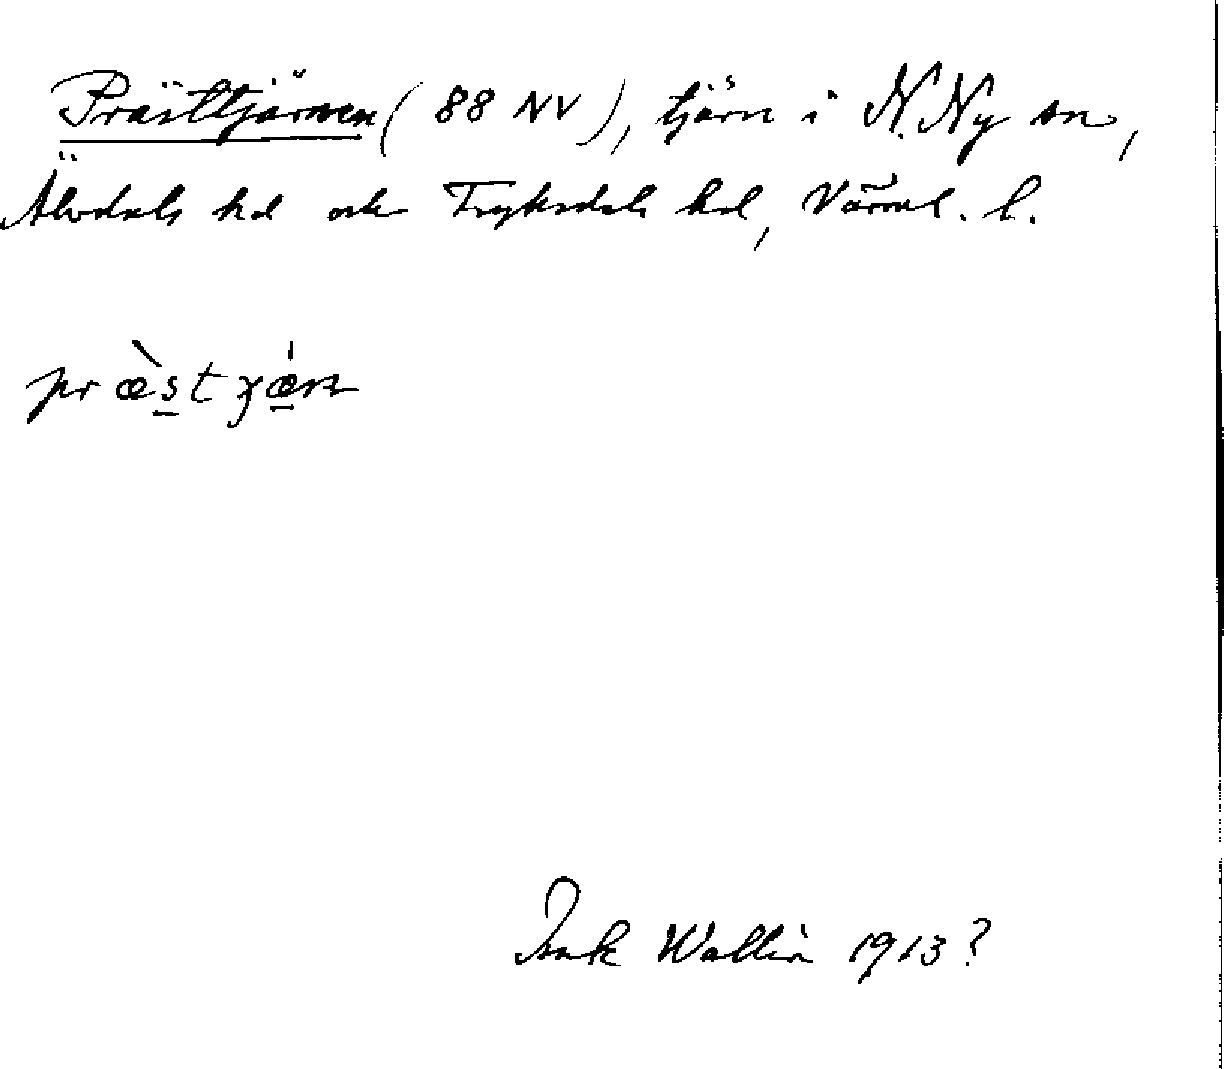 Prästtjärnen (88 NV), tjärn i N. Ny sn,
Älvdals hd och Fryksdals hd, Värml. l.
præ̀stχæ̀rn
Isak Wallin 1913?